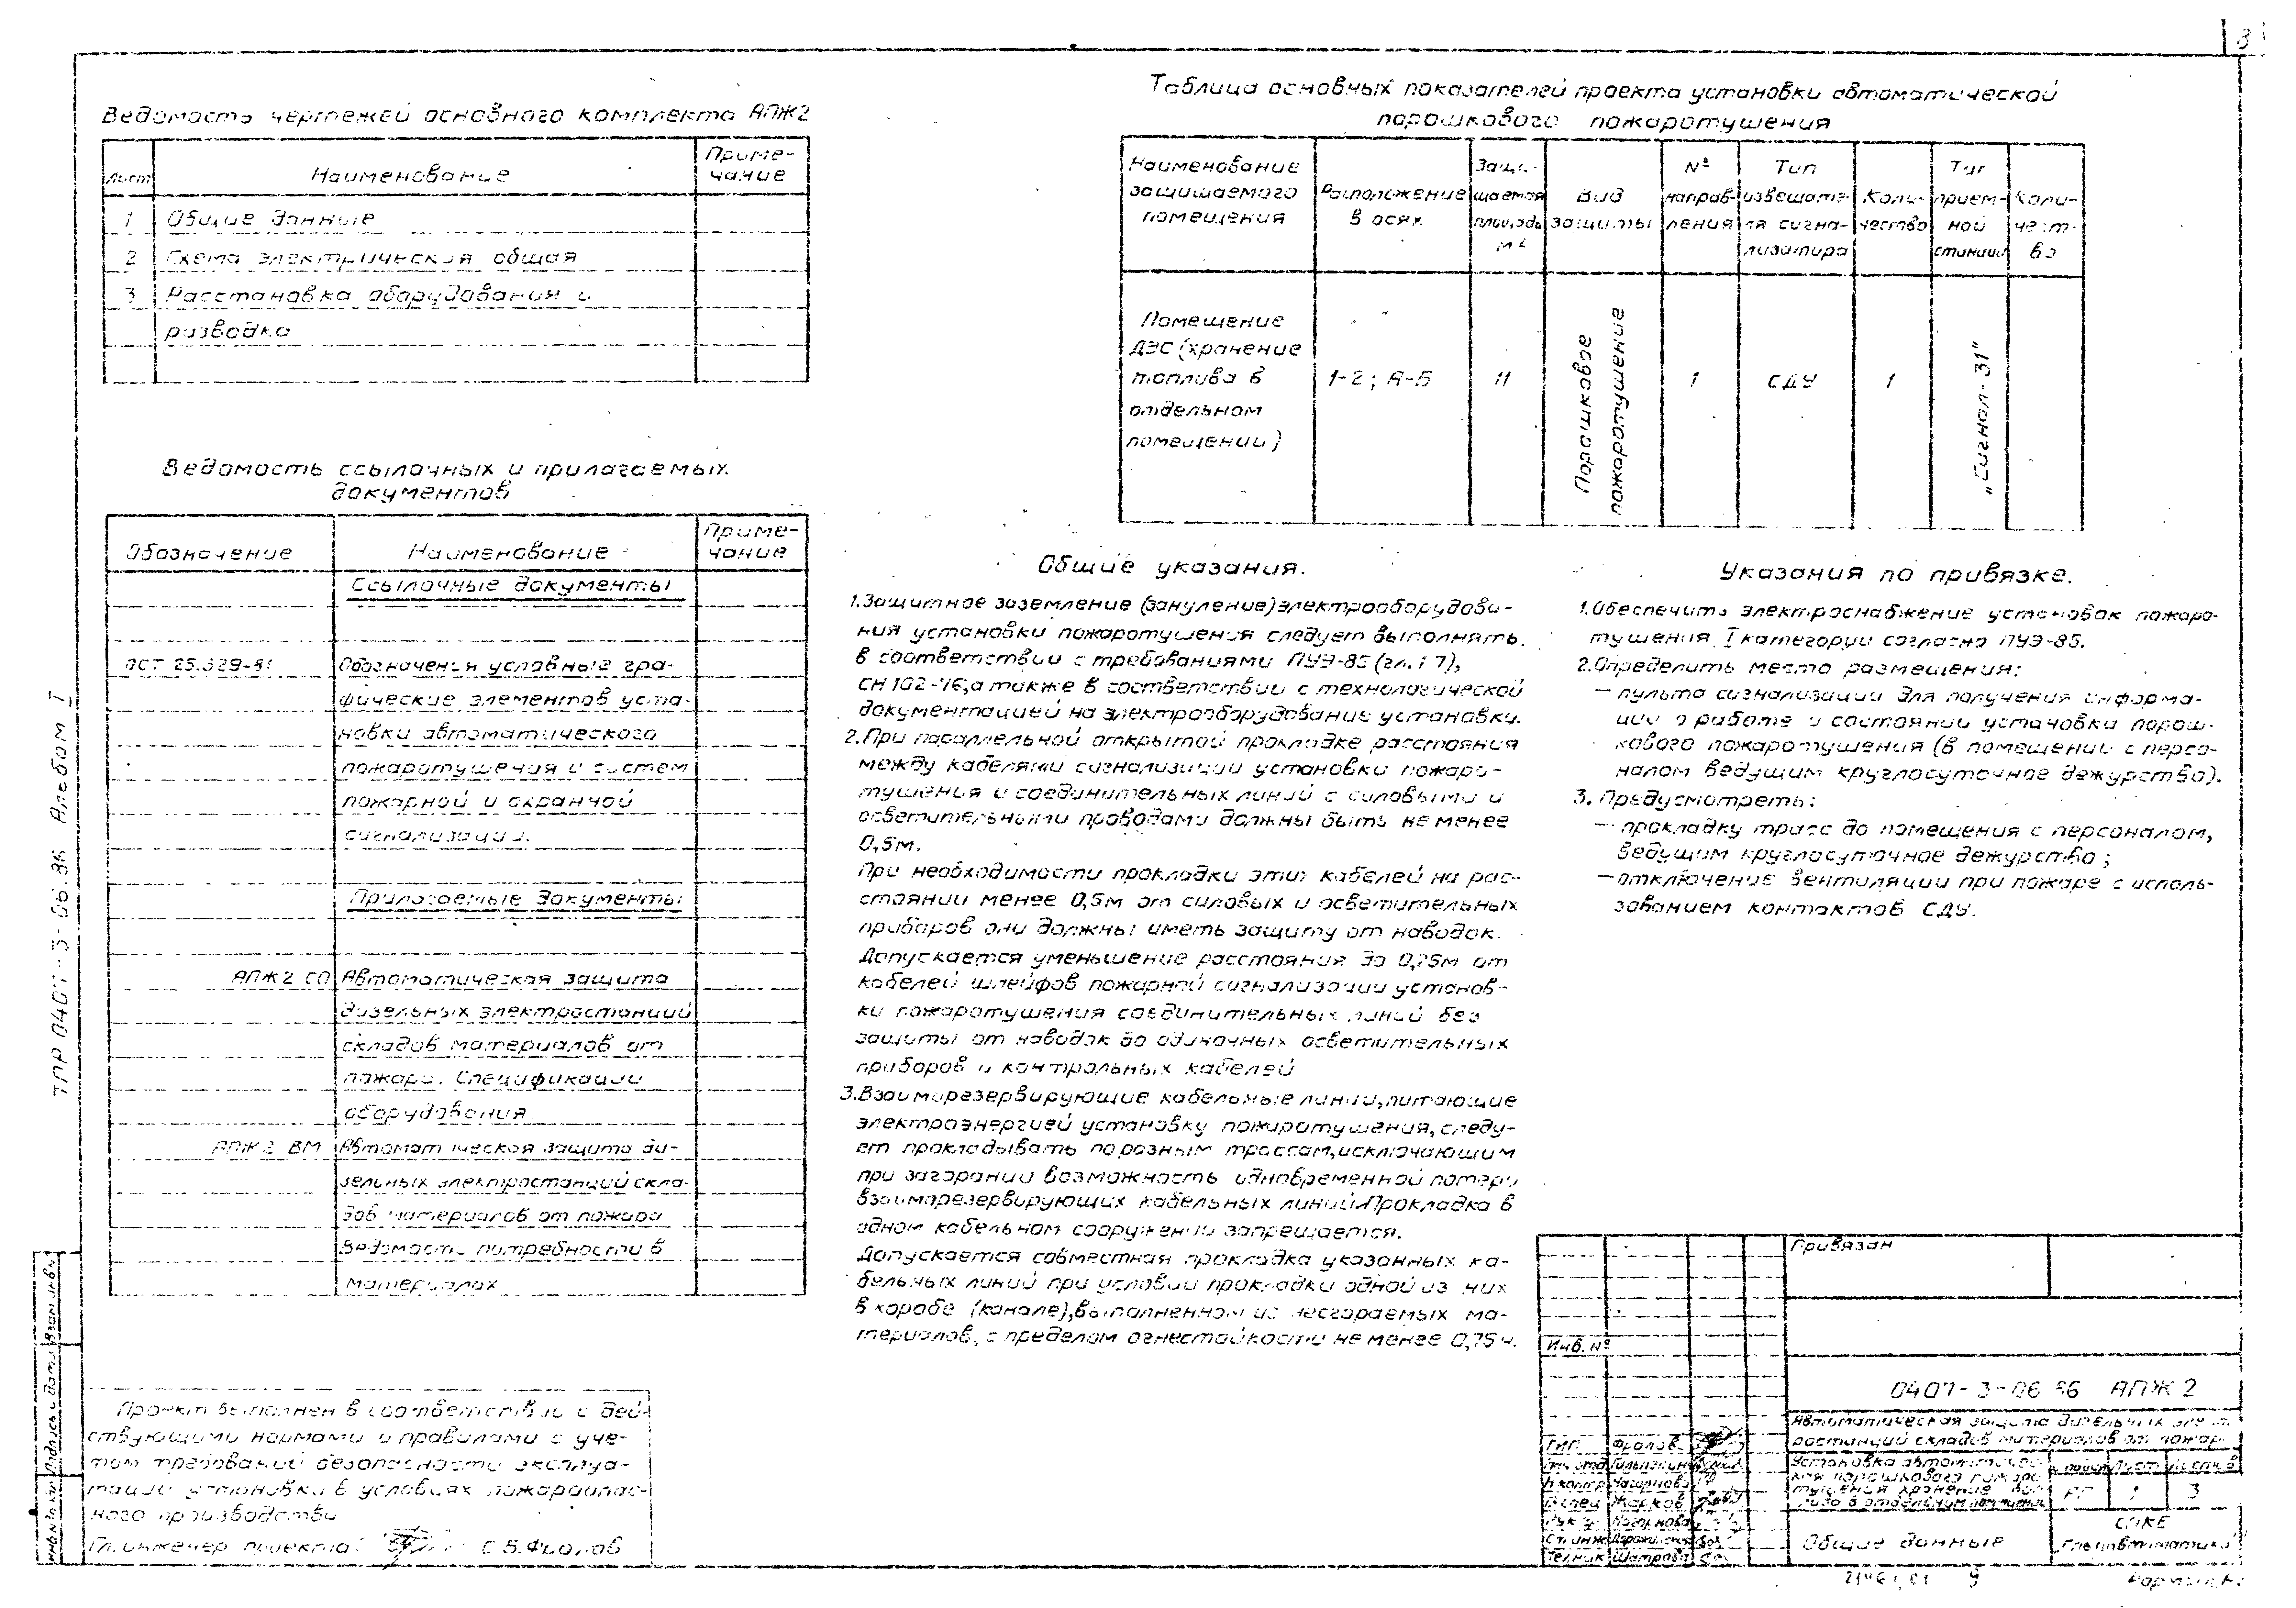 8
Ведомость чертежей основного комплекта АПЖ2
Лист
Наименование
Приме-
чание
1 Общие данные
2 Схема электрическая общая
3 Расстановка оборудования и
разводка
Ведомость ссылочных и прилагаемых
документов
Обозначение
Наименование
Приме-
чание
Ссылочные документы
ОСТ 25.329-81 Обозначения условные гра-
фические элементов уста-
новки автоматического
пожаротушения и систем
пожарной и охранной
сигнализации.
Прилагаемые документы
АПЖ2 СО Автоматическая защита
дизельных электростанций
складов материалов от
пожара. Спецификации
оборудования.
АПЖ2 ВМ Автоматическая защита ди-
зельных электростанций скла-
дов материалов от пожара
Ведомость потребности в
материалах
Проект выполнен в соответствии с дей-
ствующими нормами и правилами с уче-
том требований безопасности эксплуа-
тации установки в условиях пожароопас-
ного производства
Гл. инженер проекта С.Б. Фролов
ТПР 0407-3-06.86 Альбом I
Взам.инв.№
Подпись и дата
Инв.№ подл.
Таблица основных показателей проекта установки автоматической
порошкового пожаротушения
Наименование
защищаемого
помещения
Расположение
в осях
Защи-
щаемая
площадь
м²
Вид
защиты
№
направ-
ления
Тип
извещате-
ля сигна-
лизатора
Коли-
чество
Тип
прием-
ной
станции
Коли-
чест-
во
Помещение
ДЭС (хранение
топлива в
отдельном
помещении)
1-2; А-Б
11
Порошковое
пожаротушение
1
СДУ
1
„Сигнал-31"
Общие указания.
1. Защитное заземление (зануление) электрооборудова-
ния установки пожаротушения следует выполнять
в соответствии с требованиями ПУЭ-85 (гл. 1.7),
СН 102-76, а также в соответствии с технологической
документацией на электрооборудование установки.
2. При параллельной открытой прокладке расстояния
между кабелями сигнализации установки пожаро-
тушения и соединительных линий с силовыми и
осветительными проводами должны быть не менее
0,5м.
При необходимости прокладки этих кабелей на рас-
стоянии менее 0,5м от силовых и осветительных
приборов они должны иметь защиту от наводок.
Допускается уменьшение расстояния до 0,25м от
кабелей шлейфов пожарной сигнализации установ-
ки пожаротушения соединительных линий без
защиты от наводок до одиночных осветительных
приборов и контрольных кабелей
3. Взаиморезервирующие кабельные линии, питающие
электроэнергией установку пожаротушения, следу-
ет прокладывать по разным трассам, исключающим
при загорании возможность одновременной потери
взаиморезервирующих кабельных линий. Прокладка в
одном кабельном сооружении запрещается.
Допускается совместная прокладка указанных ка-
бельных линий при условии прокладки одной из них
в коробе (канале), выполненном из несгораемых ма-
териалов, с пределом огнестойкости не менее 0,75 ч.
Указания по привязке.
1. Обеспечить электроснабжение установок пожаро-
тушения I категории согласно ПУЭ-85.
2. Определить место размещения:
— пульта сигнализации для получения информа-
ции о работе и состоянии установки порош-
кового пожаротушения (в помещении с персо-
налом ведущим круглосуточное дежурство).
3. Предусмотреть:
— прокладку трасс до помещения с персоналом,
ведущим круглосуточное дежурство;
— отключение вентиляции при пожаре с исполь-
зованием контактов СДУ.
Привязан
Инв. №
0407-3-06.86 АПЖ 2
Автоматическая защита дизельных элект-
ростанций складов материалов от пожара
Установка автоматичес-
кая порошкового пожаро-
тушения хранение топ-
лива в отдельном помещении
Лист
Листов
РП 1 3
Общие данные
ГИП Фролов
Н.контр. Нагорнова
Гл.спец. Жарков
Рук.гр. Нагорнова
Ст.инж.
Техник Шатрова
Формат А2
9